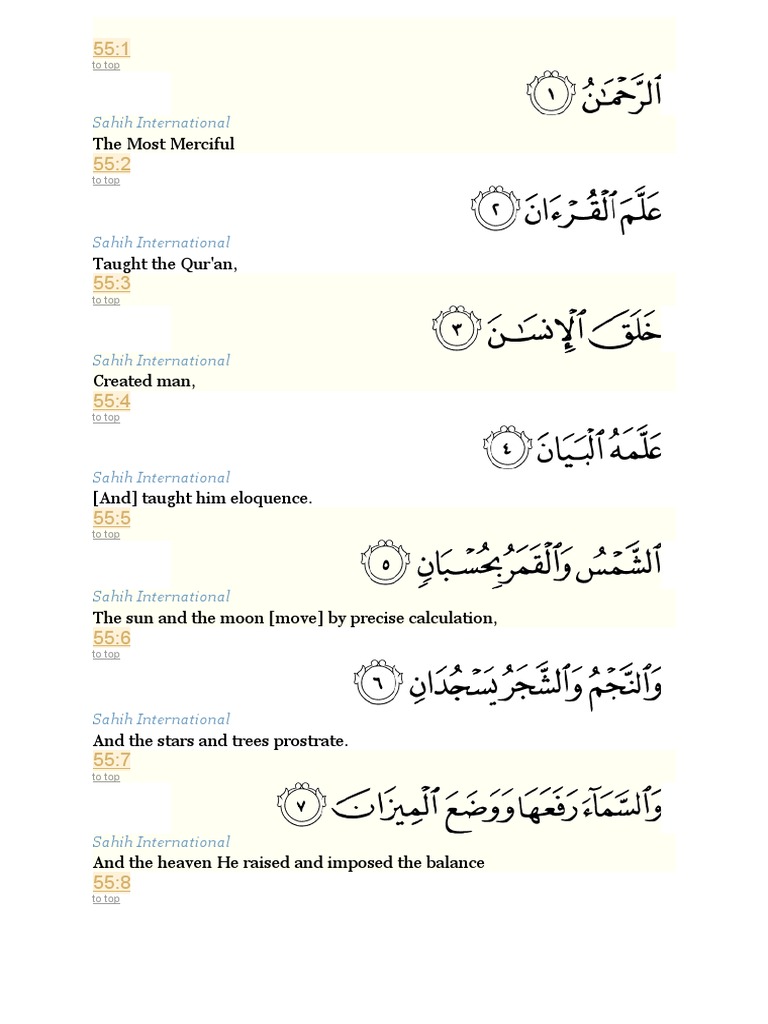 55:1
to top
ٱلرَّحْمَـٰنُ ١
Sahih International
The Most Merciful
55:2
to top
عَلَّمَ ٱلْقُرْءَانَ ٢
Sahih International
Taught the Qur'an,
55:3
to top
خَلَقَ ٱلْإِنسَـٰنَ ٣
Sahih International
Created man,
55:4
to top
عَلَّمَهُ ٱلْبَيَانَ ٤
Sahih International
[And] taught him eloquence.
55:5
to top
ٱلشَّمْسُ وَٱلْقَمَرُ بِحُسْبَانٍ ٥
Sahih International
The sun and the moon [move] by precise calculation,
55:6
to top
وَٱلنَّجْمُ وَٱلشَّجَرُ يَسْجُدَانِ ٦
Sahih International
And the stars and trees prostrate.
55:7
to top
وَٱلسَّمَآءَ رَفَعَهَا وَوَضَعَ ٱلْمِيزَانَ ٧
Sahih International
And the heaven He raised and imposed the balance
55:8
to top